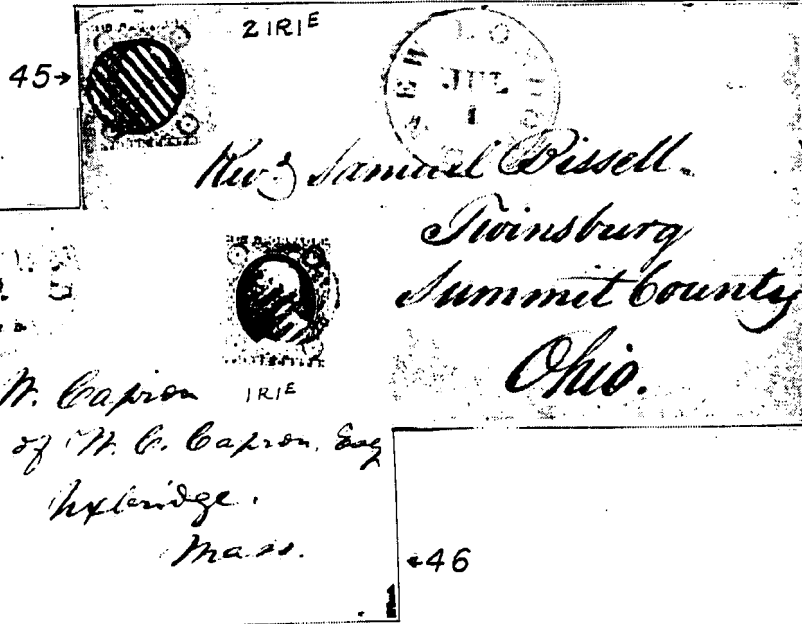 2 IRIE
45→
EW LO
JUL
1
Rev.d Samuel Bissell.
Twinsburg
Summit County
Ohio.
1RIE
W. Capron
of W. C. Capron, Esq
Uxbridge.
Mass.
←46